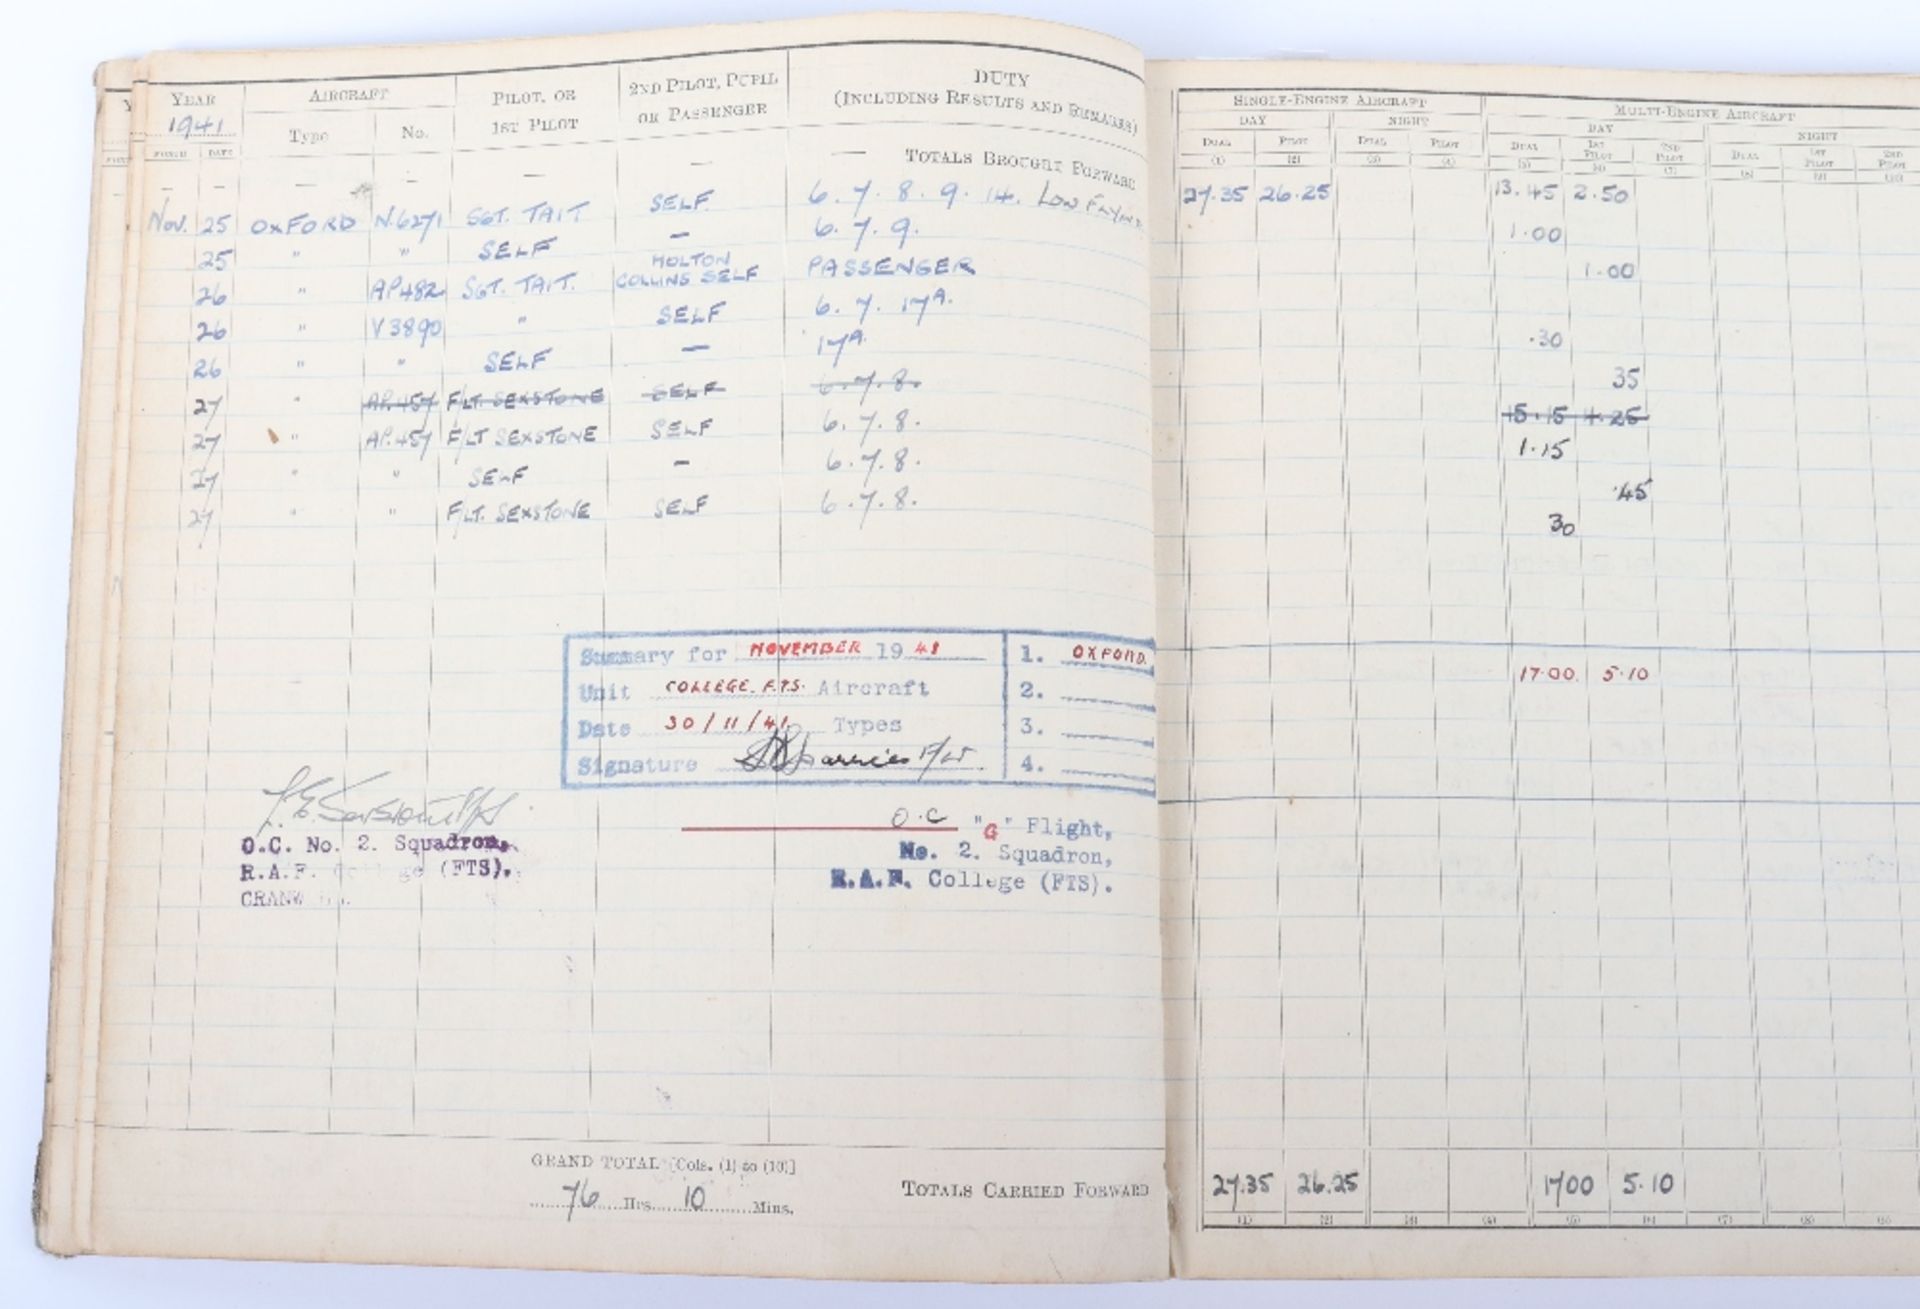 YEAR AIRCRAFT PILOT, OR 1ST PILOT 2ND PILOT, PUPIL OR PASSENGER DUTY (INCLUDING RESULTS AND REMARKS)
1941 Type No.
MONTH DATE
SINGLE-ENGINE AIRCRAFT MULTI-ENGINE AIRCRAFT
DAY NIGHT DAY NIGHT
DUAL PILOT DUAL PILOT DUAL 1ST PILOT 2ND PILOT DUAL 1ST PILOT 2ND PILOT
(1) (2) (3) (4) (5) (6) (7) (8) (9) (10)
— — — — — — — TOTALS BROUGHT FORWARD 27.35 26.25 13.45 2.50
Nov. 25 OXFORD N.6271 SGT. TAIT SELF. 6. 7. 8. 9. 14. LOW FLYING 1.00
25 " " SELF — 6. 7. 9. 1.00
26 " AP.482 SGT. TAIT. HOLTON COLLINS SELF PASSENGER
26 " V3890 " SELF 6. 7. 17A. .30
26 " " SELF — 17A. 35
27 " AP.457 F/LT. SEXSTONE SELF 6. 7. 8. 15.15 4.25
27 " AP.457 F/LT SEXSTONE SELF 6. 7. 8. 1.15
27 " " SELF — 6. 7. 8. .45
27 " " F/LT. SEXSTONE SELF 6. 7. 8. 30
Summary for NOVEMBER 1941 1. OXFORD. 17.00. 5.10
Unit COLLEGE. F.T.S. Aircraft 2.
Date 30/11/41. Types 3.
Signature F/Lt. 4.
O.C. No. 2. Squadron,
R.A.F. College (FTS).
O.C "G" Flight,
No. 2. Squadron,
R.A.F. College (FTS).
GRAND TOTAL [Cols. (1) to (10)]
76 Hrs. 10 Mins.
TOTALS CARRIED FORWARD 27.35 26.25 1700 5.10
(1) (2) (3) (4) (5) (6) (7) (8) (9)